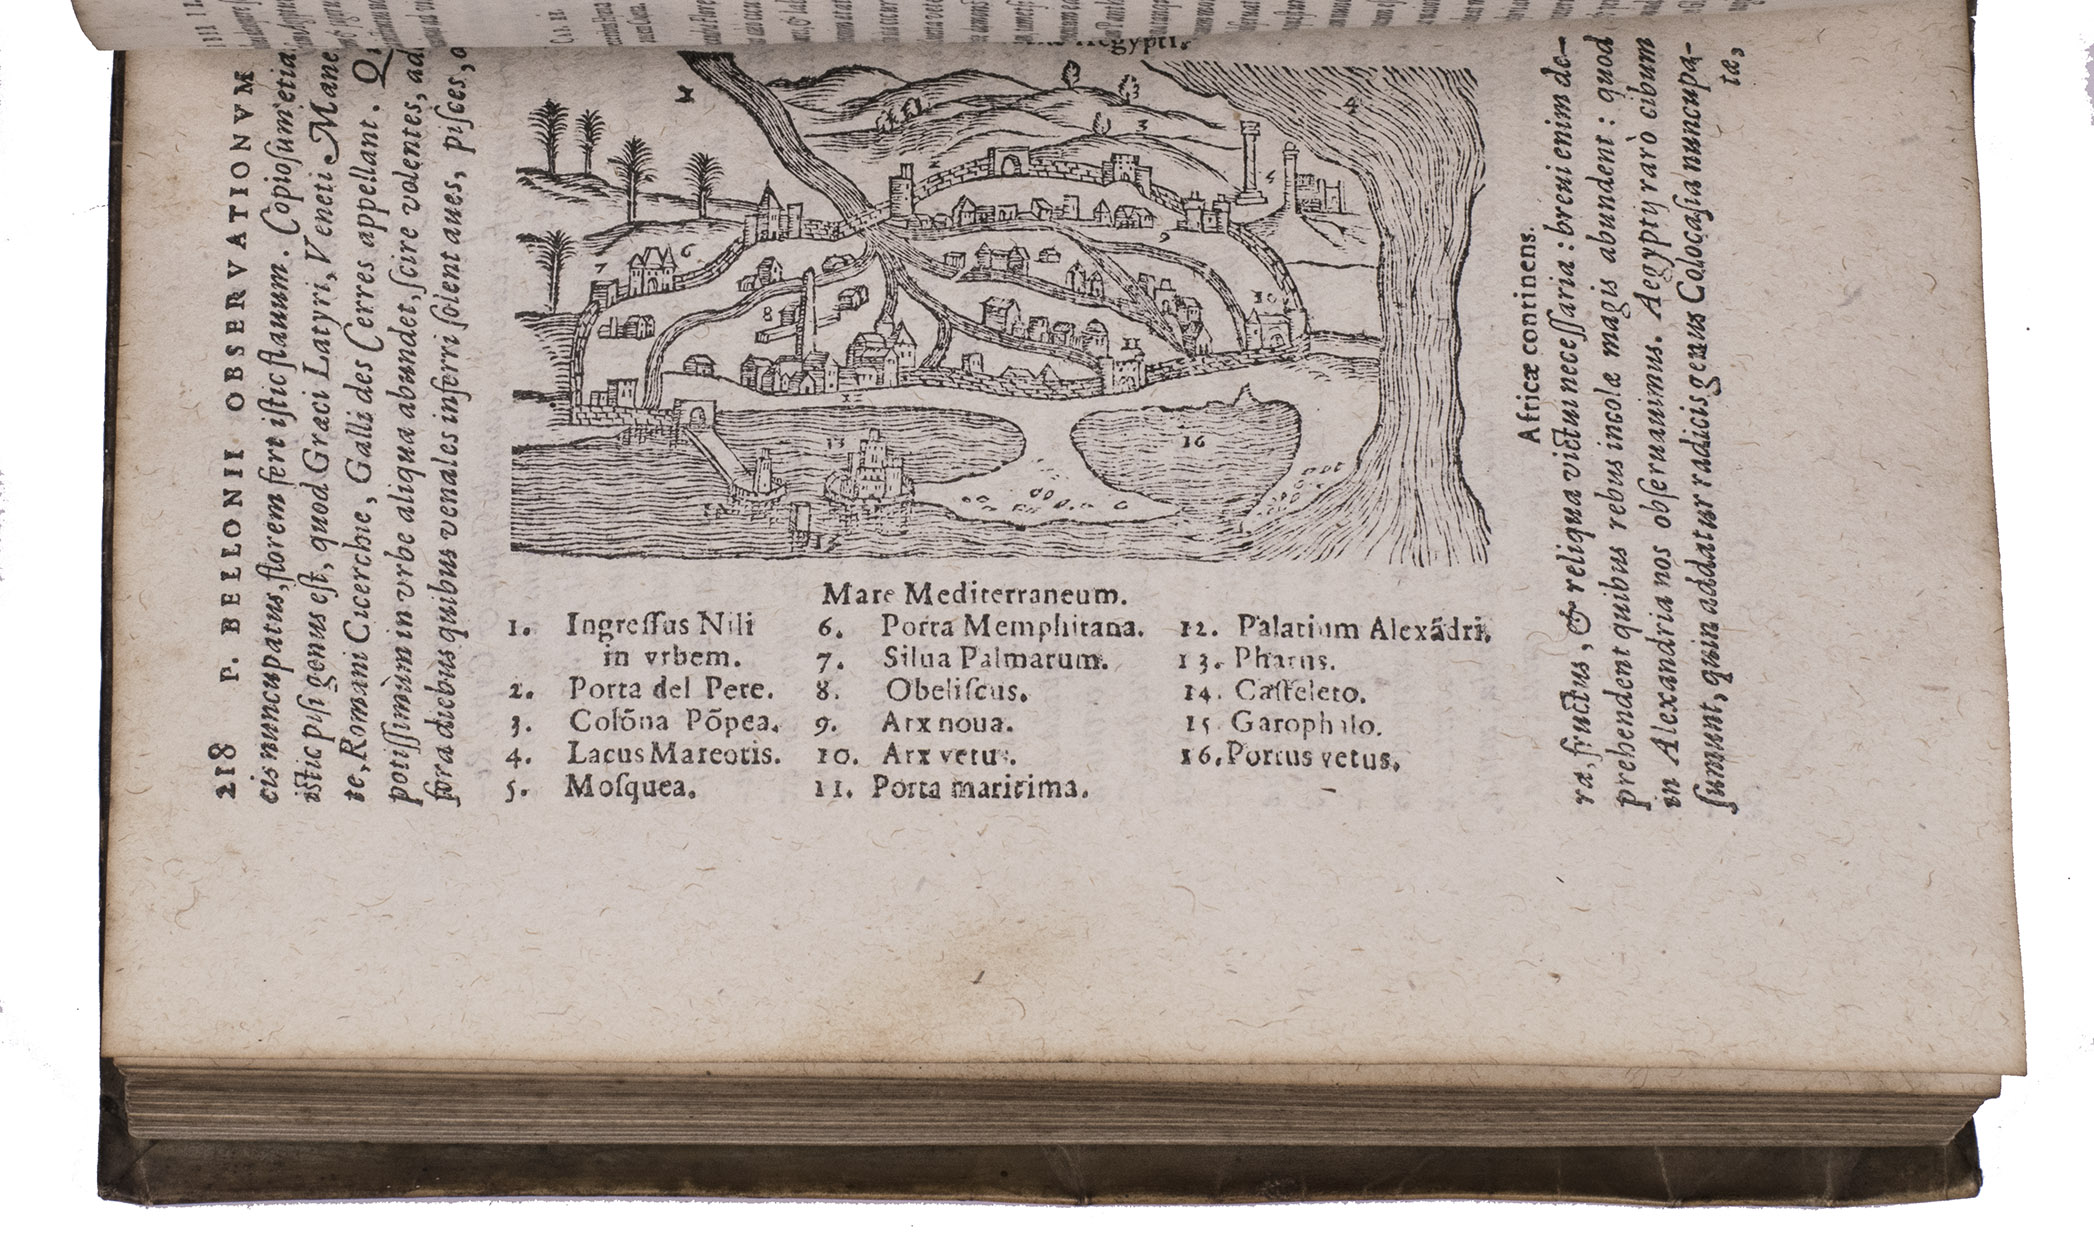 218 P. BELLONII OBSERVATIONVM
cis nuncupatus, florem fert istic flauum. Copiosum etiã
istic pisi genus est, quod Græci Latyri, Veneti Mane
te, Romani Cicerche, Galli des Cerres appellant.
potissimùm in vrbe aliqua abundet, scire volentes, ad
fora diebus quibus venales inferri solent aues, pisces,
Aegypti.
4
3
5
6
7
8
9
10
11
12
13
16
15
Mare Mediterraneum.
1. Ingressus Nili
in vrbem.
2. Porta del Pere.
3. Colõna Põpea.
4. Lacus Mareotis.
5. Mosquea.
6. Porta Memphitana.
7. Silua Palmarum.
8. Obeliscus.
9. Arx noua.
10. Arx vetus.
11. Porta maritima.
12. Palatium Alexãdri.
13. Pharus.
14. Casteleto.
15. Garophalo.
16. Portus vetus.
Africæ continens.
ra, fructus, & reliqua victui necessaria: breui enim de-
prehendent quibus rebus incolæ magis abundent: quod
in Alexandria nos obseruauimus. Aegyptij rarò cibum
sumunt, quin addatur radicis genus Colocasia nuncupa-
tæ,